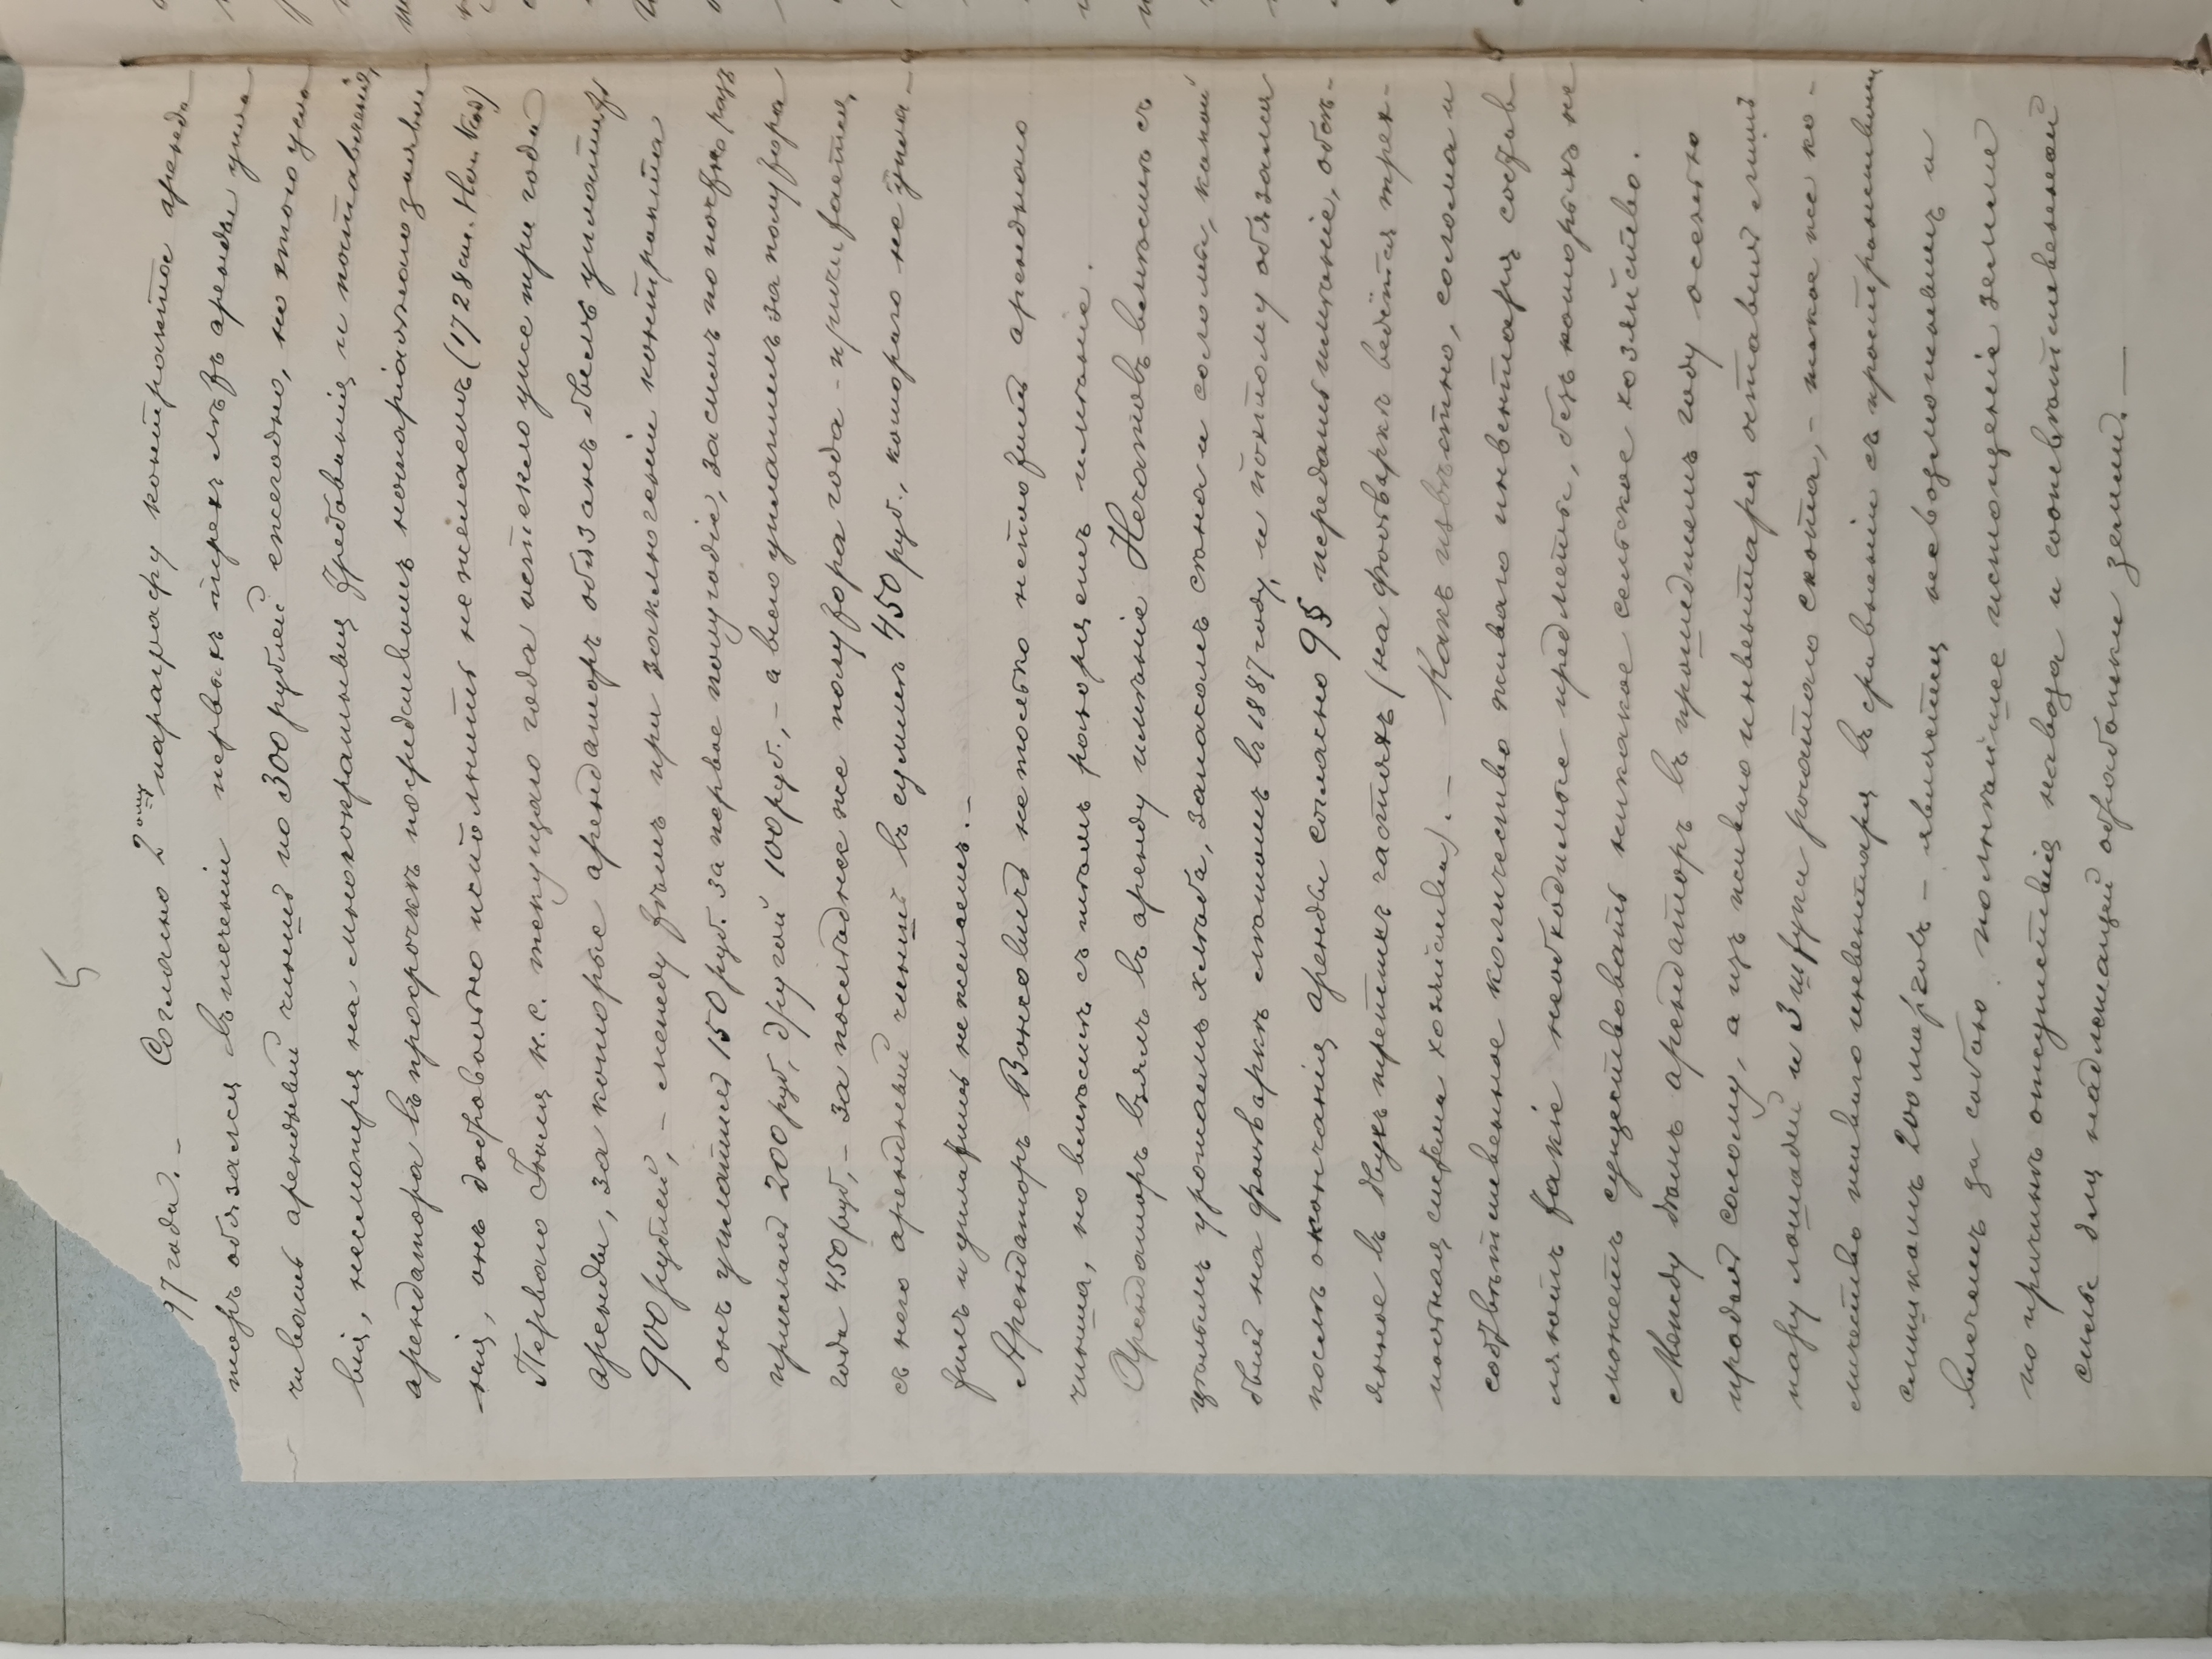 5
97 года. – Согласно 2ому параграфу контракта аренда
торъ обязался въ теченіи первыхъ трехъ лѣтъ аренды упла
чивать арендный чиншъ по 300 рублей ежегодно, но этого усло
вія, несмотря на многократныя требованія и напоминанія,
арендатора въ просрочкѣ посредствомъ нотаріальнаго заявле
нія, онъ добровольно исполнить не желаетъ (1728 ст. Нап. Код.)
Перваго Іюня н.с. текущаго года истекло уже три года
аренды, за которые арендаторъ обязанъ былъ уплатить
900 рублей, – между тѣмъ при заключеніи контракта
онъ уплатилъ 150 руб. за первое полугодіе, засимъ по почтѣ разъ
прислалъ 200 руб., другой 100 руб., – а всего уплатилъ за полтора
года 450 руб., – за послѣднее же полтора года – причитается
съ него арендный чиншъ въ суммѣ 450 руб., котораго не упла-
тилъ и уплатить не желаетъ. –
Арендаторъ Вонсовичъ не только не платитъ аренднаго
чинша, но вмѣстѣ съ тѣмъ разоряетъ имѣніе.
Арендаторъ взялъ въ аренду имѣніе Нечатовъ вмѣстѣ съ
цѣлымъ урожаемъ хлѣба, запасомъ сѣна и соломы, какой
былъ на фольваркѣ въ 1887 году, и поэтому обязался
послѣ окончанія аренды согласно 9§ передать имѣніе, обсѣ-
янное въ двухъ третихъ частяхъ (на фольваркѣ ведётся трех-
польная система хозяйства). – Какъ извѣстно, солома и
соотвѣтственное количество живаго инвентаря состав
ляютъ такіе необходимые предметы, безъ которыхъ не
можетъ существовать никакое сельское хозяйство.
Между тѣмъ арендаторъ въ прошедшемъ году осенью
продалъ солому, а изъ живаго инвентаря оставилъ лишь
пару лошадей и 3 штуки рогатаго скота, – такое же ко-
личество живаго инвентаря въ сравненіи съ пространствомъ
слишкомъ 200 морговъ – является невозможнымъ и
влечетъ за собою полнѣйшее истощеніе земли
по причинѣ отсутствія навоза и соотвѣтственной
силы для надлежащей обработки земли. –